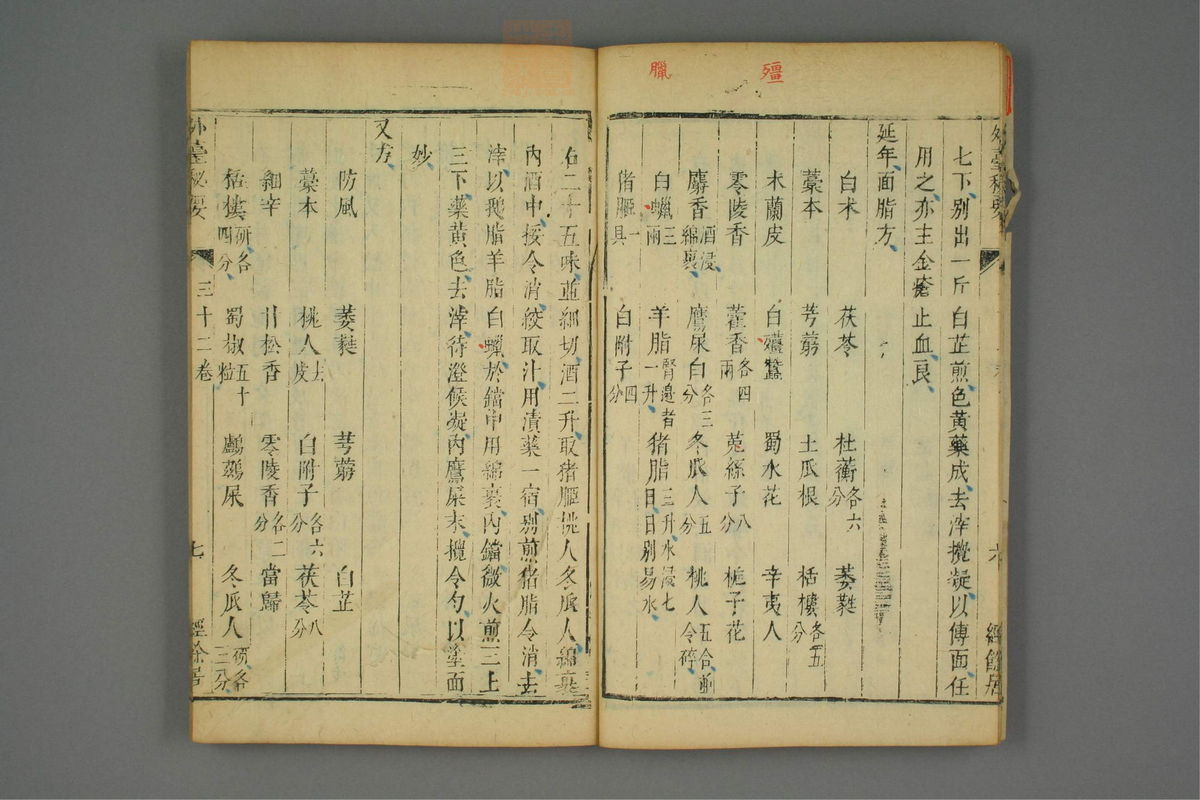 殭
臘
外臺秘要
六
經餘居
七下別出一斤白芷煎色黃藥成去滓攪凝以傅面任
用之亦主金瘡止血良
延年面脂方
白朮 茯苓 杜蘅各六分 萎蕤
藁本 芎藭 土瓜根 栝樓各五分
木蘭皮 白殭蠶 蜀水花 辛夷人
零陵香 藿香各四兩 菟絲子八分 梔子花
麝香酒浸綿裹 鷹屎白各三分 冬瓜人五分 桃人五合令碎
白蠟三兩 羊脂腎邊者一升 猪脂三升水浸七日日別易水
猪胰一具 白附子四分
右二十五味並細切酒二升取猪胰桃人冬瓜人綿裹
內酒中挼令消絞取汁用漬藥一宿別煎猪脂令消去
滓以鵝脂羊脂白蠟於鐺中用綿裹內鐺微火煎三上
三下藥黃色去滓待澄候凝內鷹屎末攪令勻以塗面
妙
又方
防風 萎蕤 芎藭 白芷
藁本 桃人去皮 白附子各六分 茯苓八分
細辛 甘松香 零陵香各二分 當歸
栝樓研各四分 蜀椒五十粒 鸕鷀屎 冬瓜人研各三分
外臺秘要 三十二卷 七 經餘居